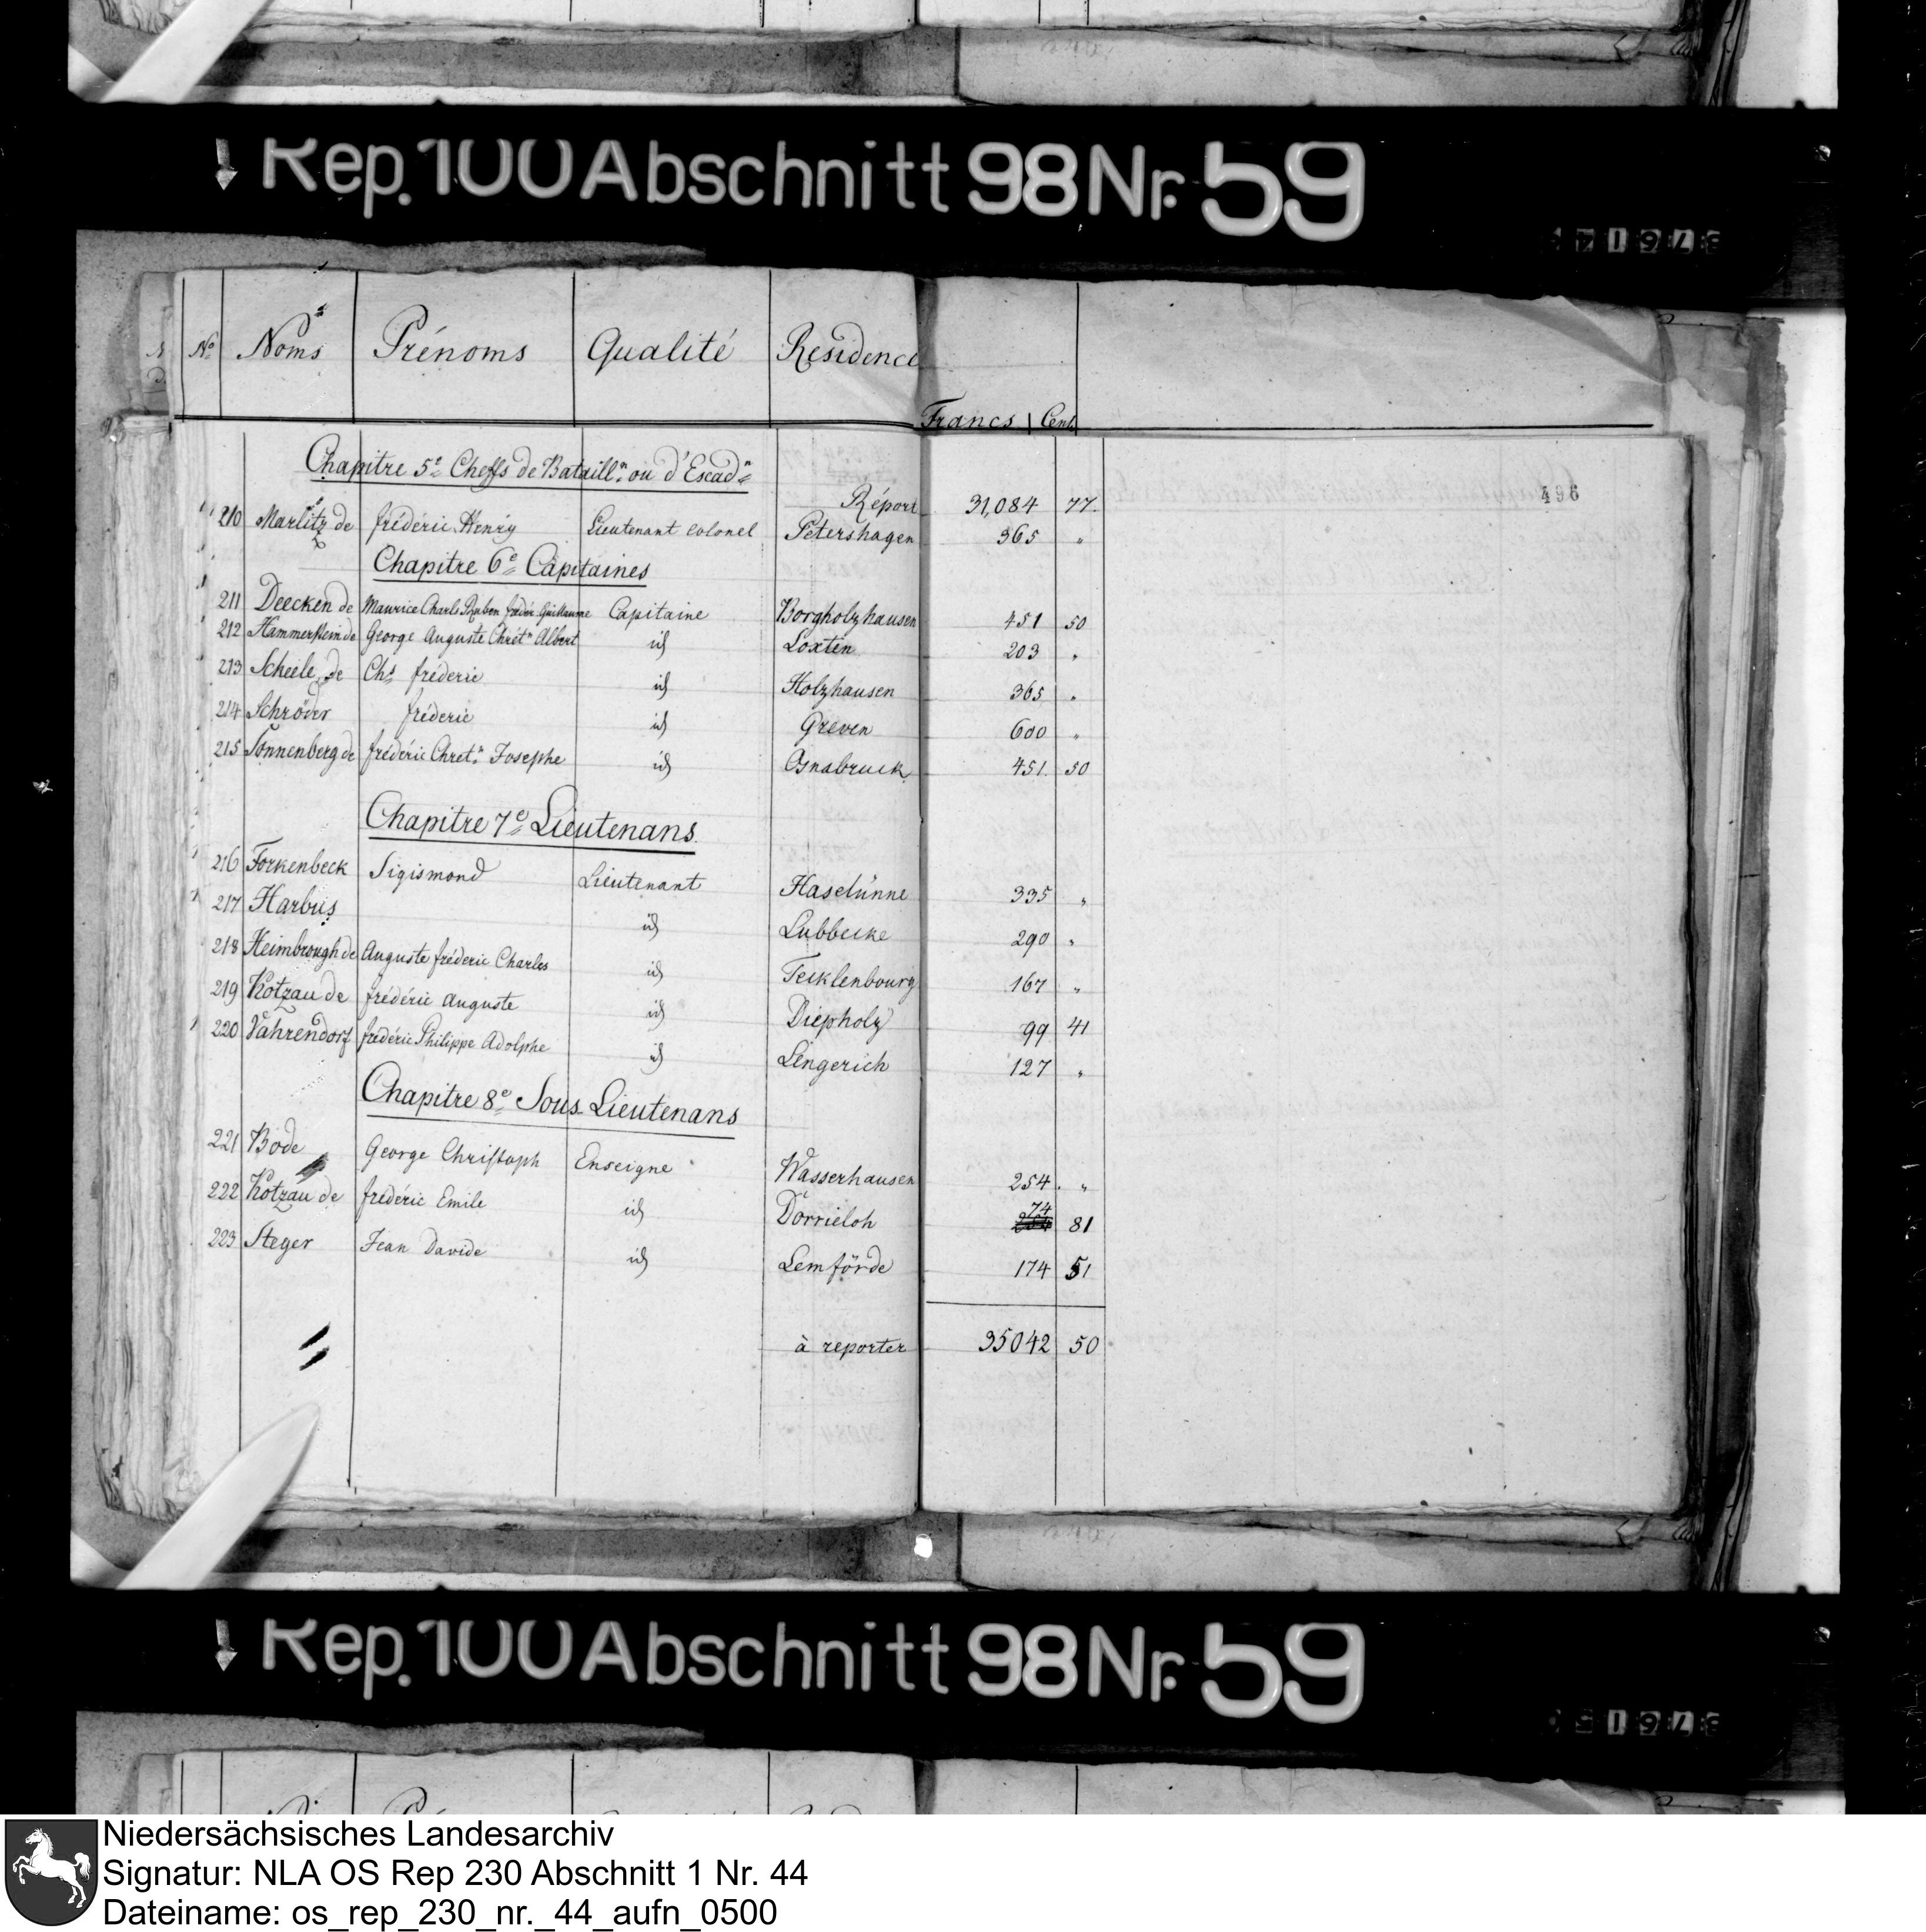 Rep. 100 Abschnitt 98 Nr. 59
No Noms Prénoms Qualité Residence
Francs Cent.
Chapitre 5e Cheffs de Bataill.n ou d'Escad.n
496
Réport 31,084 77.
210 Marlitz de frédéric Henry Lieutenant colonel Petershagen 365 "
Chapitre 6e Capitaines
211 Deecken de Maurice Charls Ruben frédér. Guillaume Capitaine Borgholzhausen 451 50
212 Hammerstein de George Auguste Chrétn Albert id Loxten 203 "
213 Scheele, de Chs fréderic id Holzhausen 365 "
214 Schröder fréderic id Greven 600 "
215 Sonnenberg de frédéric Chretn Josephe id Osnabruck 451. 50
Chapitre 7e Lieutenans
216 Forkenbeck Sigismond Lieutenant Haselünne 335 "
217 Harbus id Lubbecke 290 "
218 Heimbrough de Auguste fréderic Charles id Tecklenbourg 167 "
219 Kotzau de frédéric Auguste id Diepholz 99 41
220 Vahrendorf frédéric Philippe Adolphe id Lengerich 127 "
Chapitre 8e Sous Lieutenans
221 Bode George Christoph Enseigne Wasserhausen 254. "
222 Kotzau de frédéric Emile id Dörrieloh 74 81
223 Steger Jean Davide id Lemförde 174 51
à reporter 35042 50
Rep. 100 Abschnitt 98 Nr. 59
Niedersächsisches Landesarchiv
Signatur: NLA OS Rep 230 Abschnitt 1 Nr. 44
Dateiname: os_rep_230_nr._44_aufn_0500